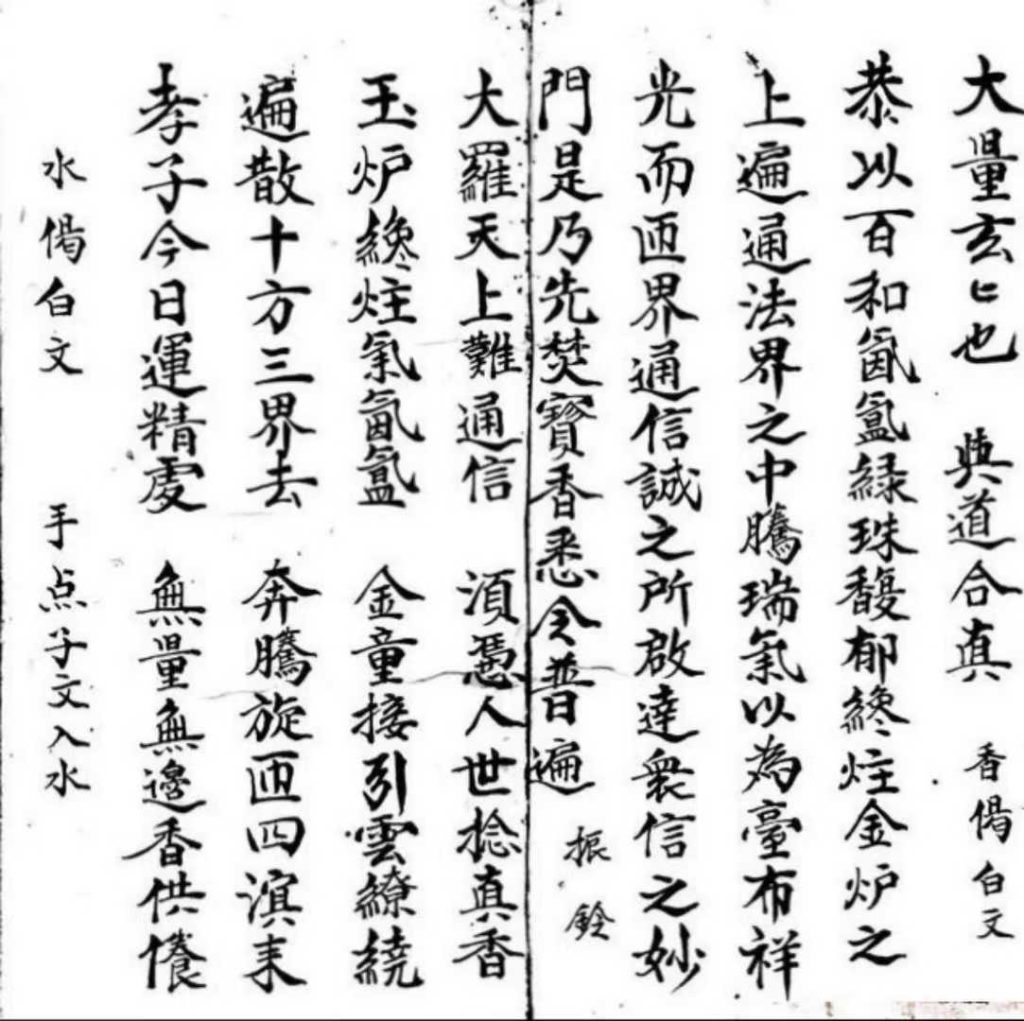 大量玄匕也 與道合真 香偈白文
恭以百和氤氳緑珠馥郁纔炷金炉之
上遍通法界之中騰瑞氣以為臺布祥
光而匝界通信誠之所啟達衆信之妙
門是乃先焚寳香悉令普遍 振鈴
大羅天上難通信 須憑人世捻真香
玉炉纔炷氣氤氳 金童接引雲繚繞
遍散十方三界去 奔騰旋匝四濱来
孝子今日運精虔 無量無邊香供養
水偈白文 手点子文入水